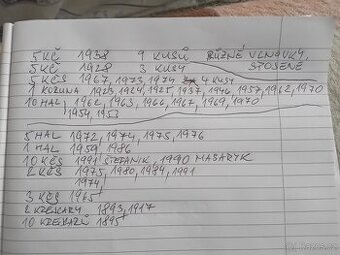 5 KČ 1938 9 KUSŮ RŮZNÉ VLNOVKY,
5 KČ 1928 3 KUSY STOSENÉ
5 KČS 1967, 1973, 1974 4 KUSY
1 KORUNA 1923, 1924, 1925, 1937, 1946, 1957, 1962, 1970
10 HAL 1962, 1963, 1966, 1967, 1969, 1970
1954, 1953
5 HAL 1972, 1974, 1975, 1976
1 HAL 1959, 1986
10 KČS 1991 ŠTEFANIK, 1990 MASARYK
2 KČS 1975, 1980, 1984, 1991
1974,
3 KČS 1965,
2 KREJCARY 1893, 1917
10 KREJCARŮ 1895